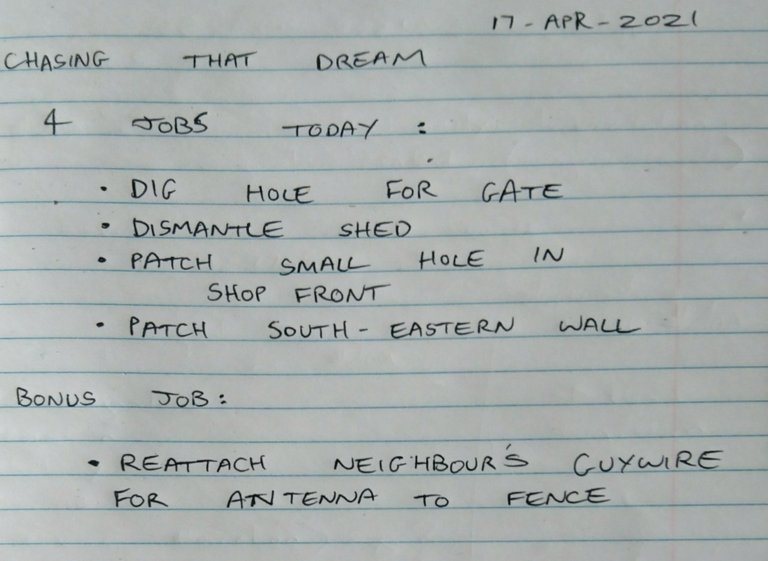 17-APR-2021
CHASING THAT DREAM
4 JOBS TODAY :
• DIG HOLE FOR GATE
• DISMANTLE SHED
• PATCH SMALL HOLE IN
SHOP FRONT
• PATCH SOUTH-EASTERN WALL
BONUS JOB:
• REATTACH NEIGHBOUR'S GUYWIRE
FOR ANTENNA TO FENCE